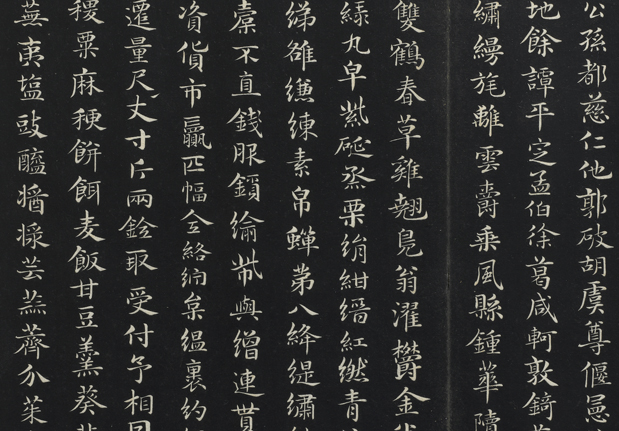 公孫都慈仁他郭破胡虞尊偃
地餘譚平定孟伯徐葛咸軻敦錡
繡縵旄離雲爵乘風縣鍾華
雙鶴春草雞翹鳧翁濯鬱金
綠丸皁紫硟烝栗絹紺縉紅繎青
綈雒縑練素帛蟬第八絳緹繡
不直錢服䌛緰幣與繒連貰
資貨市贏匹幅全絡枲縕裏約
遷量尺丈寸斤兩銓取受付予相
稷粟麻秔餅餌麦飯甘豆羹葵
蕪荑塩豉醯醬芸蒜薺介茱